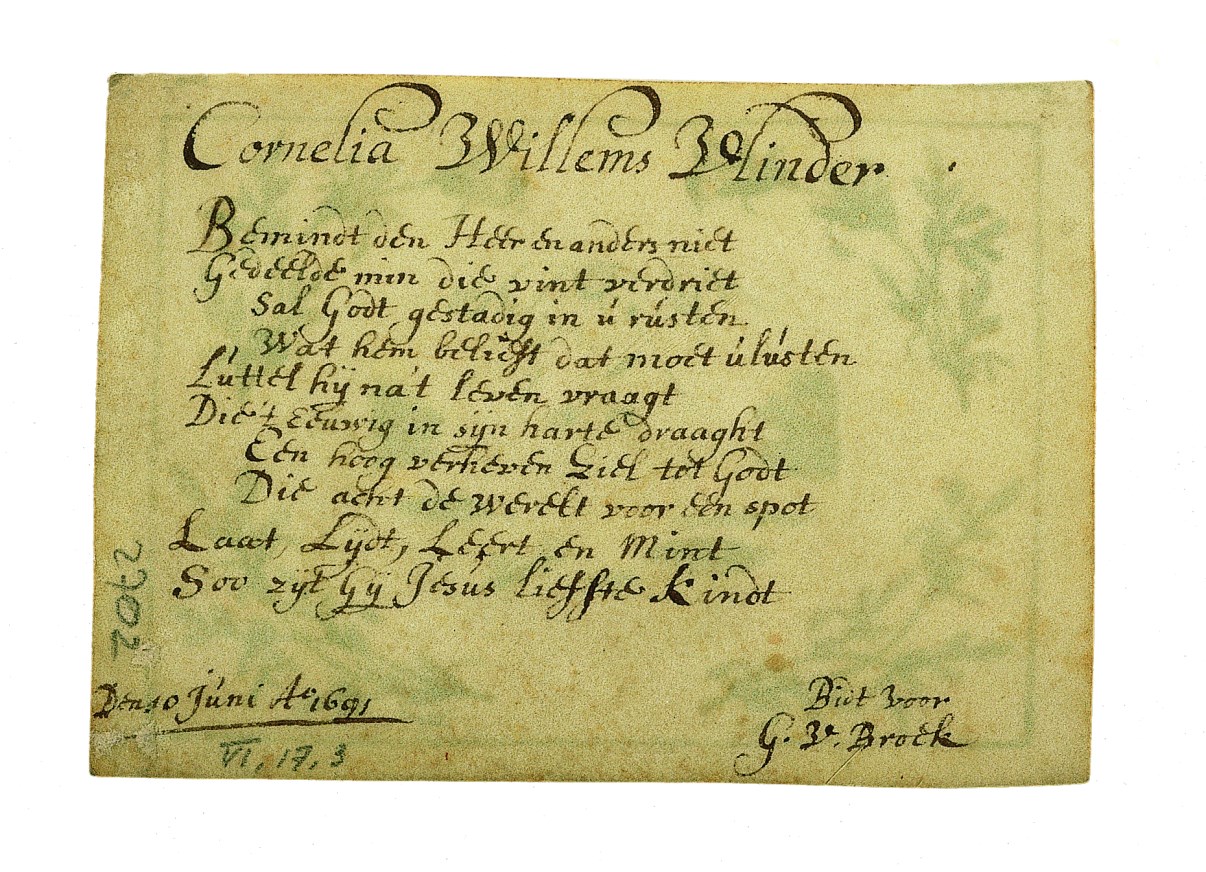 Cornelia Willems Vlinder
Bemindt den Heer en anders niet
Gedeelde min die vint verdriet
Sal Godt gestadig in ú rústen
Wat hem belieft dat moet ú lústen
Lúttel hÿ na't leven vraagt
Die 't Eeuwig in sÿn harte draaght
Een hoog verheven Ziel tot Godt
Die acht de werelt voor een spot
Laat, Lÿdt, Leert en Mint
Soo zÿt Gÿ Jesús liefste kindt
Den 10 Júni Ao 1691
Bidt voor
G. V. Broek
VI, 17, 3